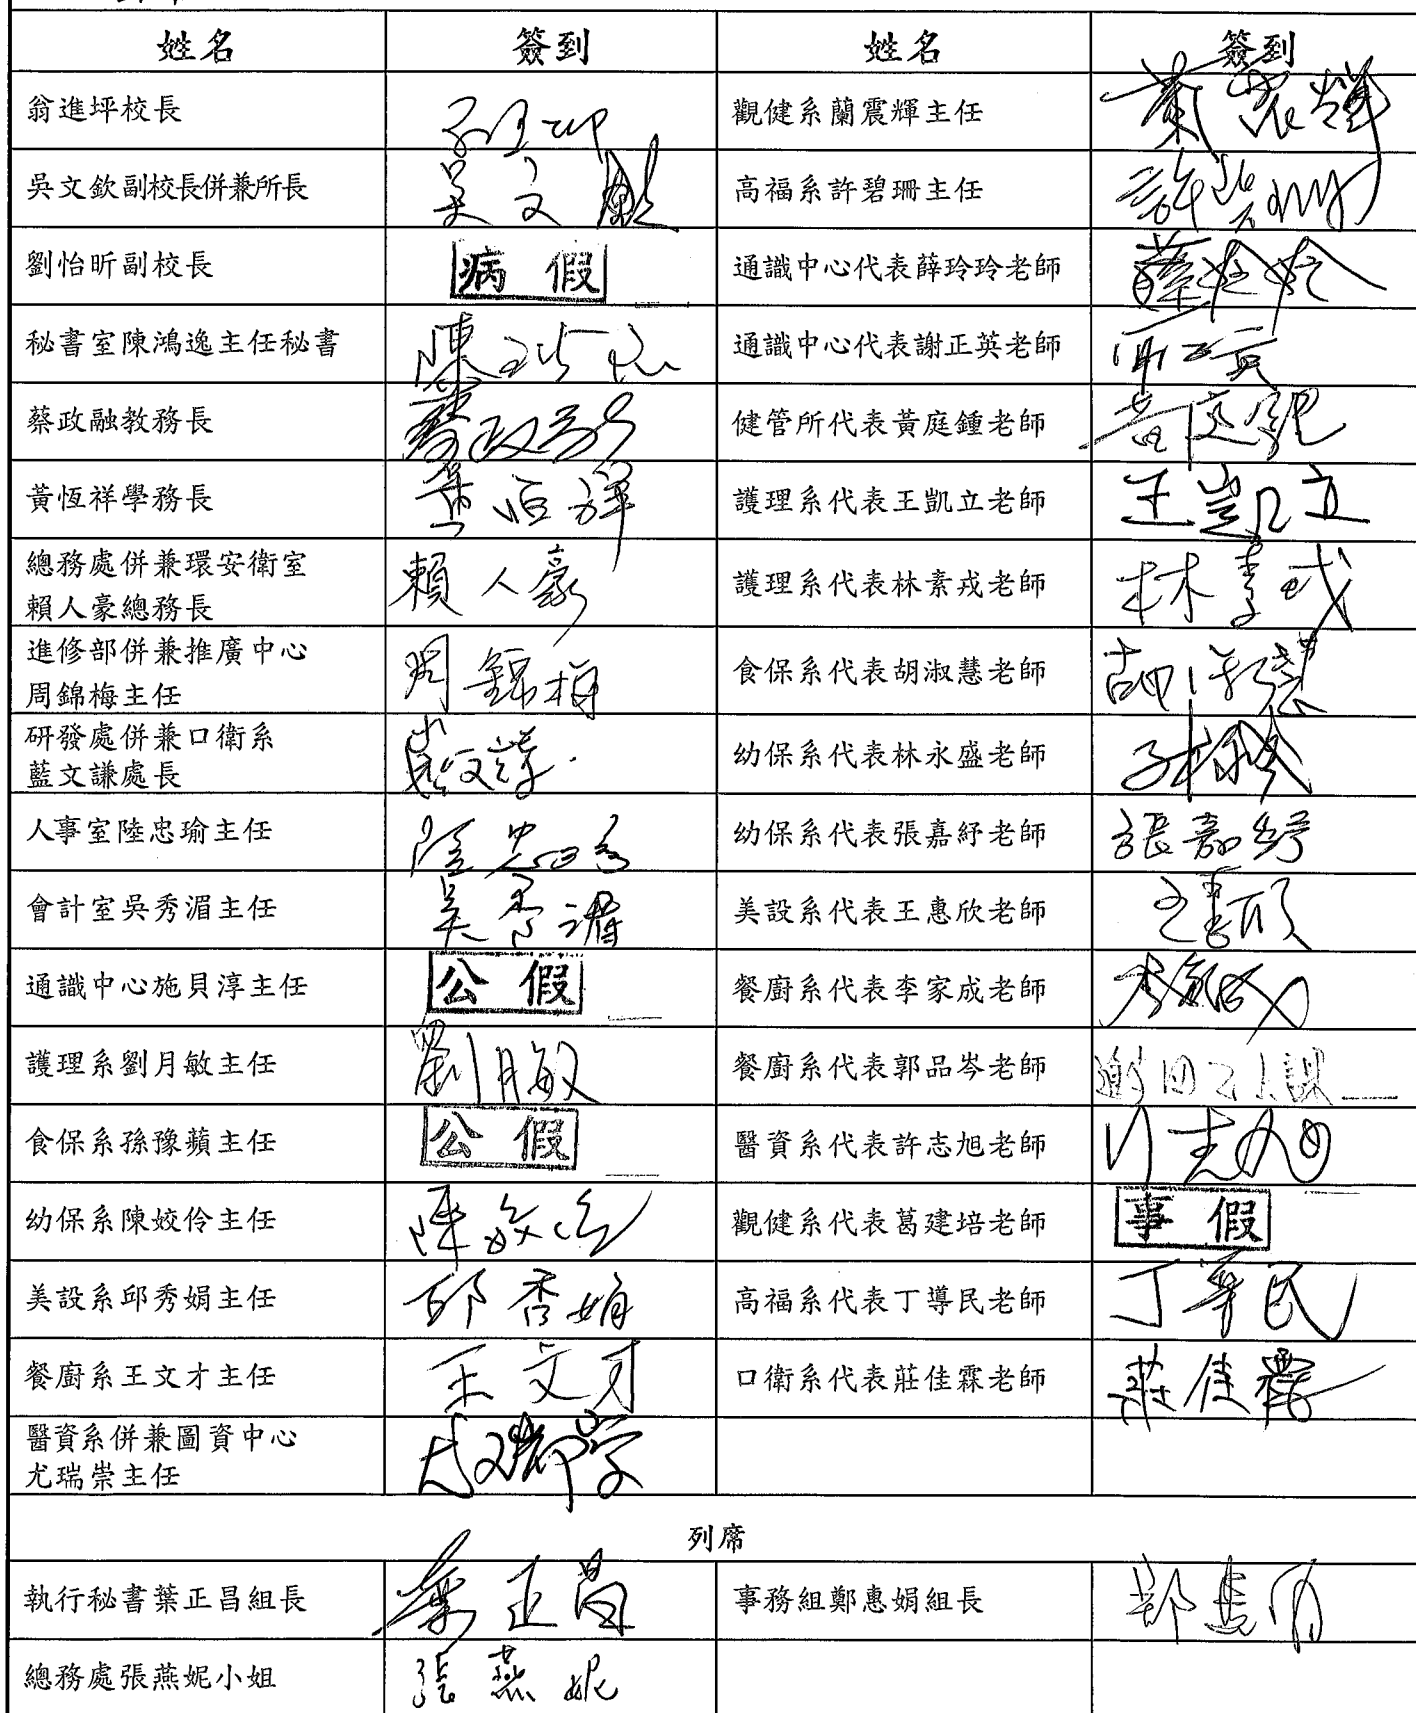 姓名 簽到 姓名 簽到
翁進坪校長 觀健系蘭震輝主任
吳文欽副校長併兼所長 吳文欽 高福系許碧珊主任 許碧珊
劉怡昕副校長 病假 通識中心代表薛玲玲老師 薛玲玲
秘書室陳鴻逸主任秘書 陳鴻逸 通識中心代表謝正英老師
蔡政融教務長 蔡政融 健管所代表黃庭鍾老師 黃庭鍾
黃恆祥學務長 黃恆祥 護理系代表王凱立老師 王凱立
總務處併兼環安衛室
賴人豪總務長 賴人豪 護理系代表林素戎老師 林素戎
進修部併兼推廣中心
周錦梅主任 周錦梅 食保系代表胡淑慧老師 胡淑慧
研發處併兼口衛系
藍文謙處長 藍文謙 幼保系代表林永盛老師
人事室陸忠瑜主任 陸忠瑜 幼保系代表張嘉紓老師 張嘉紓
會計室吳秀湄主任 吳秀湄 美設系代表王惠欣老師 王惠欣
通識中心施貝淳主任 公假 餐廚系代表李家成老師 李家成
護理系劉月敏主任 劉月敏 餐廚系代表郭品岑老師
食保系孫豫蘋主任 公假 醫資系代表許志旭老師 許志旭
幼保系陳姣伶主任 陳姣伶 觀健系代表葛建培老師 事假
美設系邱秀娟主任 邱秀娟 高福系代表丁導民老師 丁導民
餐廚系王文才主任 王文才 口衛系代表莊佳霖老師 莊佳霖
醫資系併兼圖資中心
尤瑞崇主任 尤瑞崇
列席
執行秘書葉正昌組長 葉正昌 事務組鄭惠娟組長 鄭惠娟
總務處張燕妮小姐 張燕妮